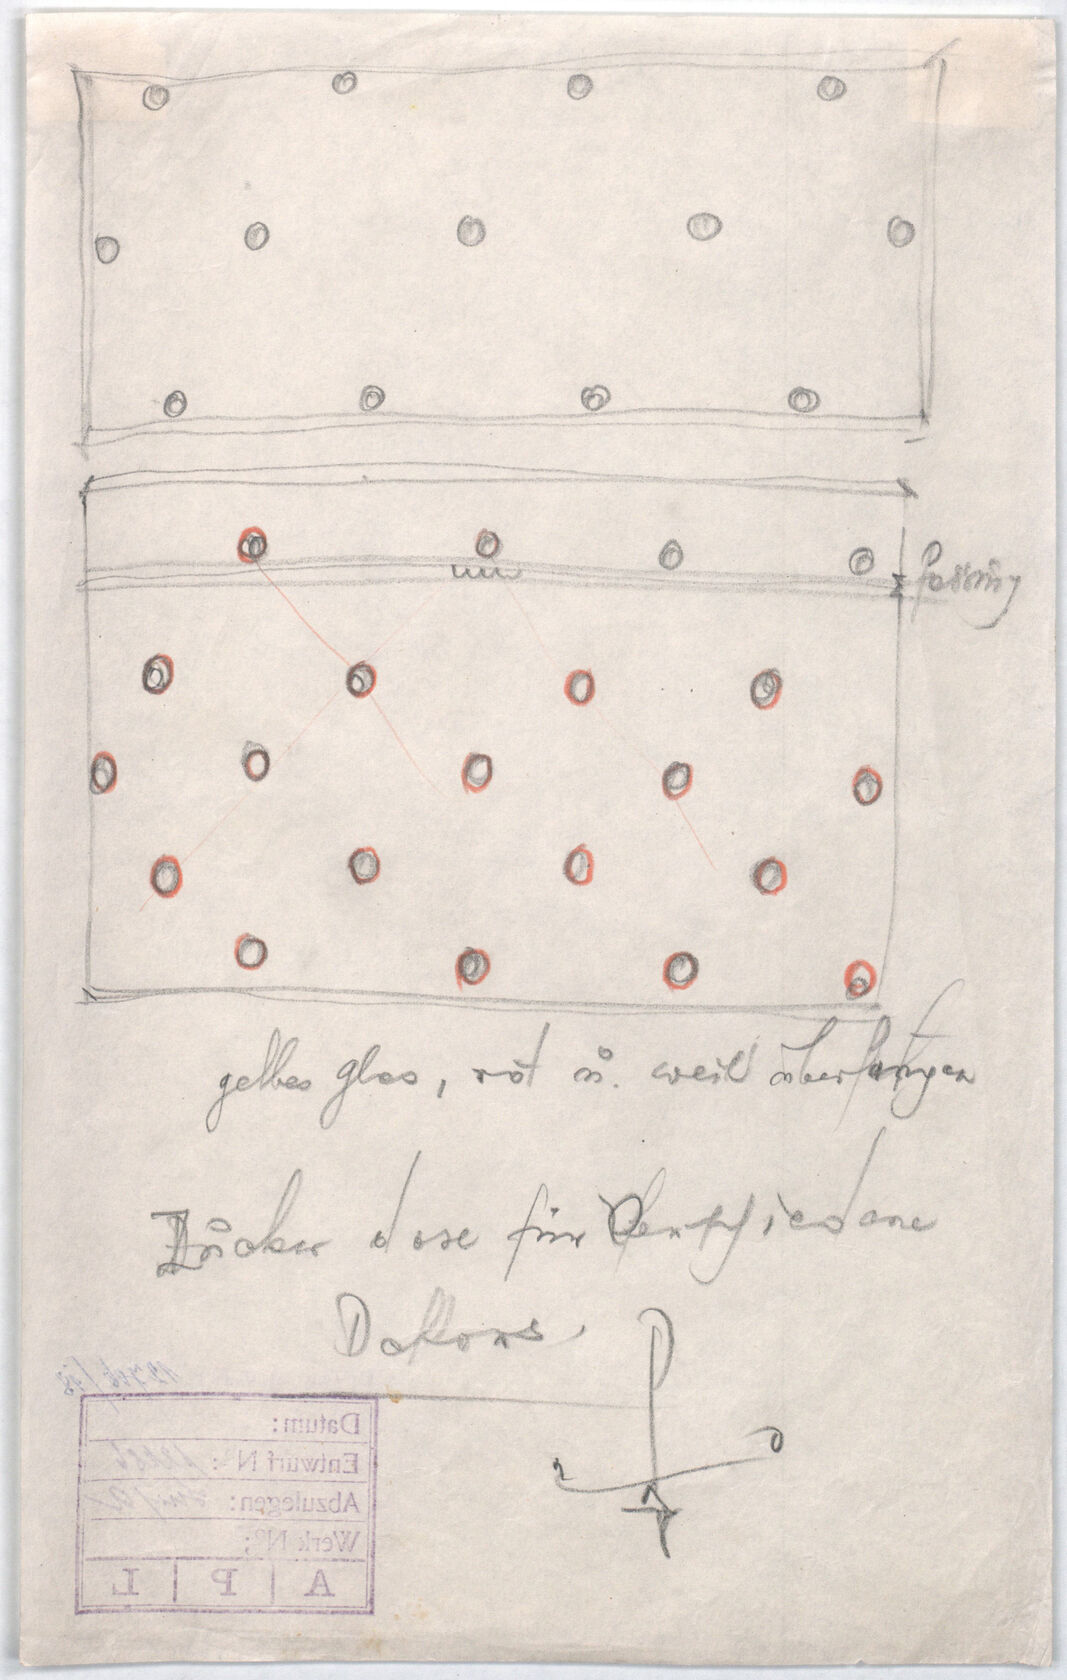 Fassung
gelbes Glas, rot u. weiß überfangen
Zucker dose für Verschiedene
Dekors
Datum:
Entwurf Nº:
Abzulegen:
Werk Nº:
A P L